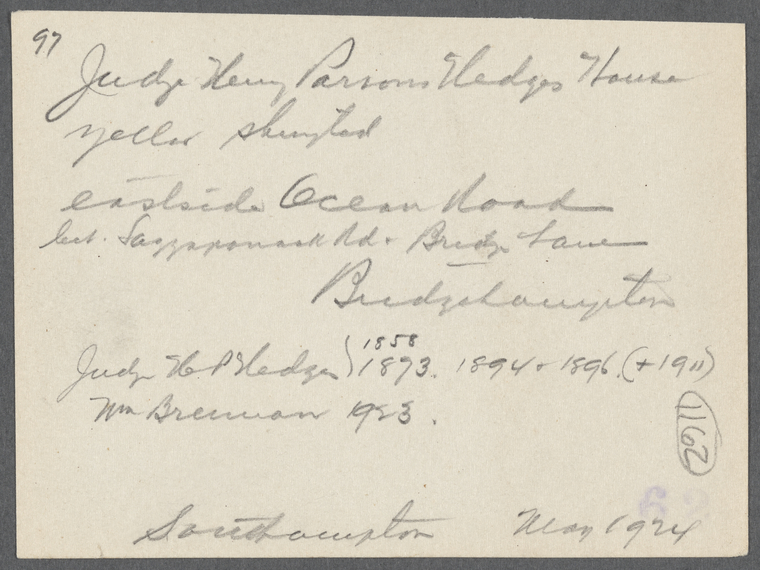 97
Judge Henry Parsons Hedges House
yellow shingled
east side Ocean Road
bet. Saggaponack Rd. + Bridge Lane
Bridgehampton
1858
Judge H P Hedges } 1873. 1894 + 1896. (+ 1911)
Wm Brennan 1923.
1162
Southampton May 1924